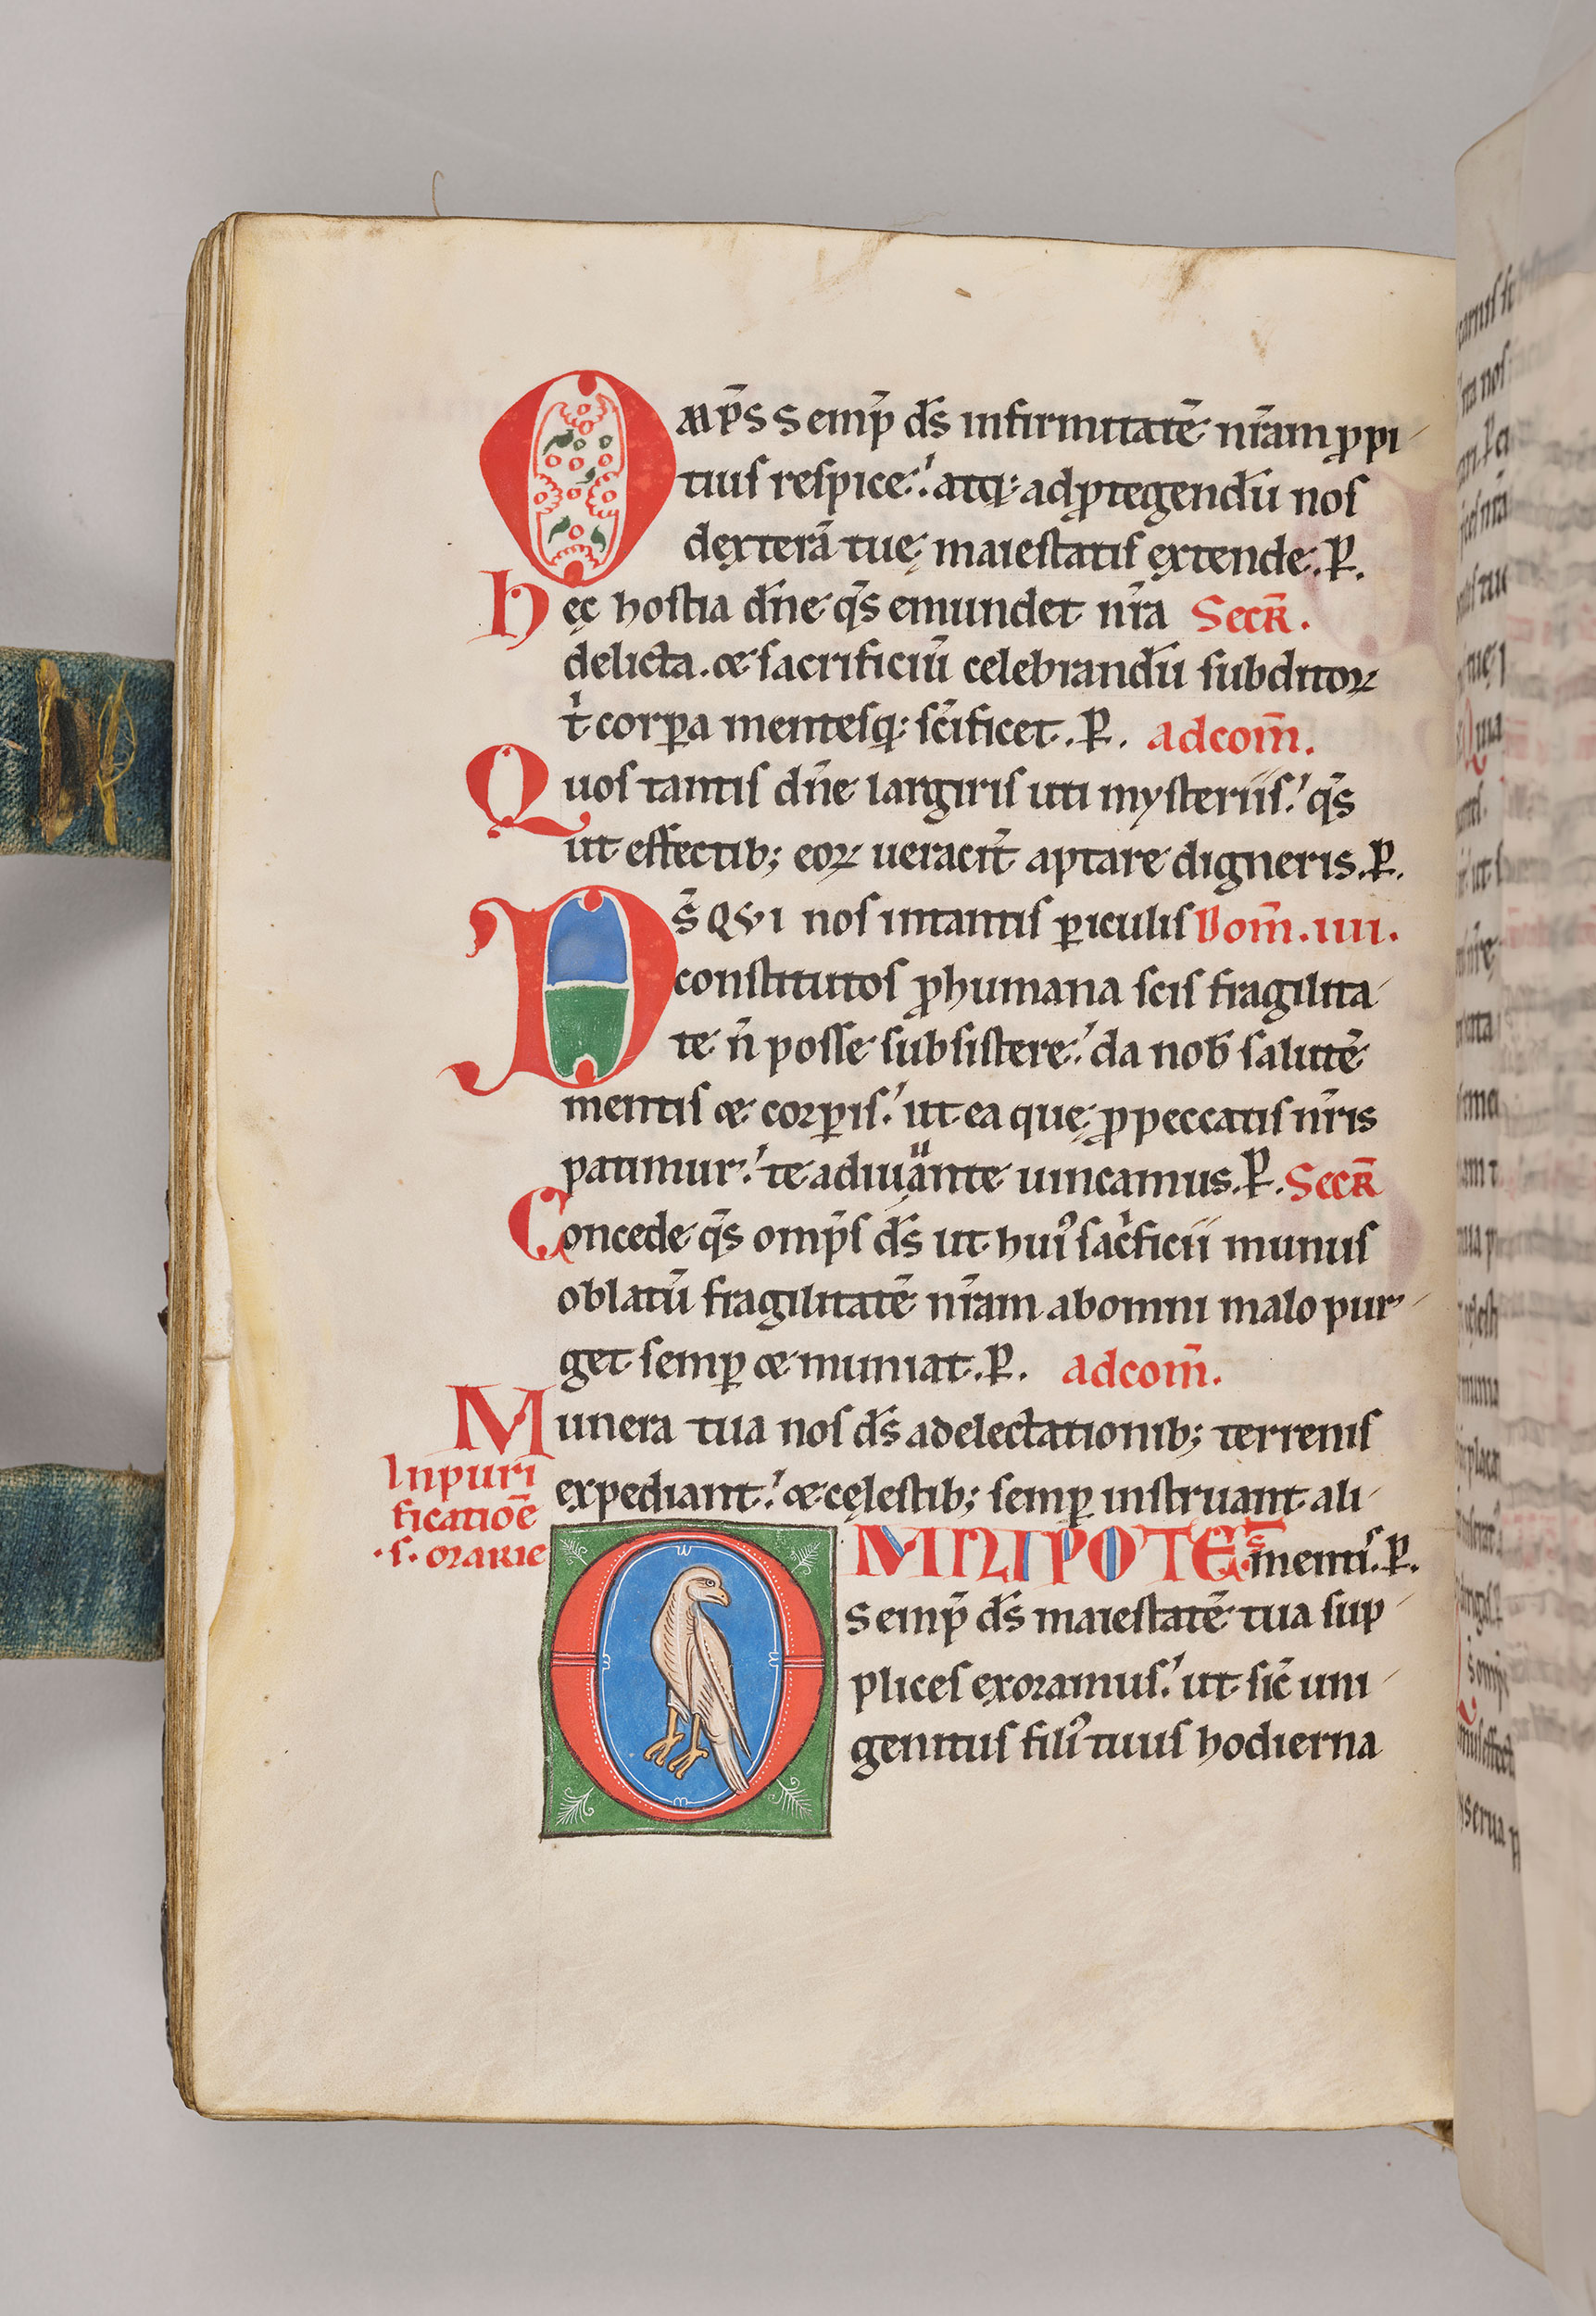 Omp̄s Semp̄ ds̄ infirmitatē nr̄am ꝓpi
tius respice. atq; ad ꝓtegendū nos
dexterā tuę maiestatis extende. P̱.
Hęc hostia dn̄e qs̄ emundet nr̄a Secr̄.
delicta. & sacrificiū celebrandū subditoꝝ
t̄ corꝑa mentesq; sc̄ificet. P̱. ad com̄.
Quos tantis dn̄e largiris uti mysteriis. qs̄
ut effectib; eoꝝ ueracit̄ aptare digneris. P̱.
Ds̄ QVI nos in tantis ꝑiculis Dom̄. IIII.
constitutos ꝓ humana scis fragilita
te n̄ posse subsistere. da nob̄ salutē
mentis & corꝑis. ut ea quę ꝓ peccatis nr̄is
patimur. te adiuuante uincamus. P̱. Secr̄
Concede qs̄ omp̄s ds̄ ut huiꝰ sac̄ficii munus
oblatū fragilitatē nr̄am ab omni malo pur
get semꝑ & muniat. P̱. ad com̄.
Munera tua nos ds̄ a delectationib; terrenis
In puri
ficatiōe
.s. marie
expediant. & cęlestib; semꝑ instruant ali
mentis. P̱.
OMNIPOTES
Semp̄ ds̄ maiestatē tua sup
plices exoramus. ut sic̄ uni
genitus filiꝰ tuus hodierna